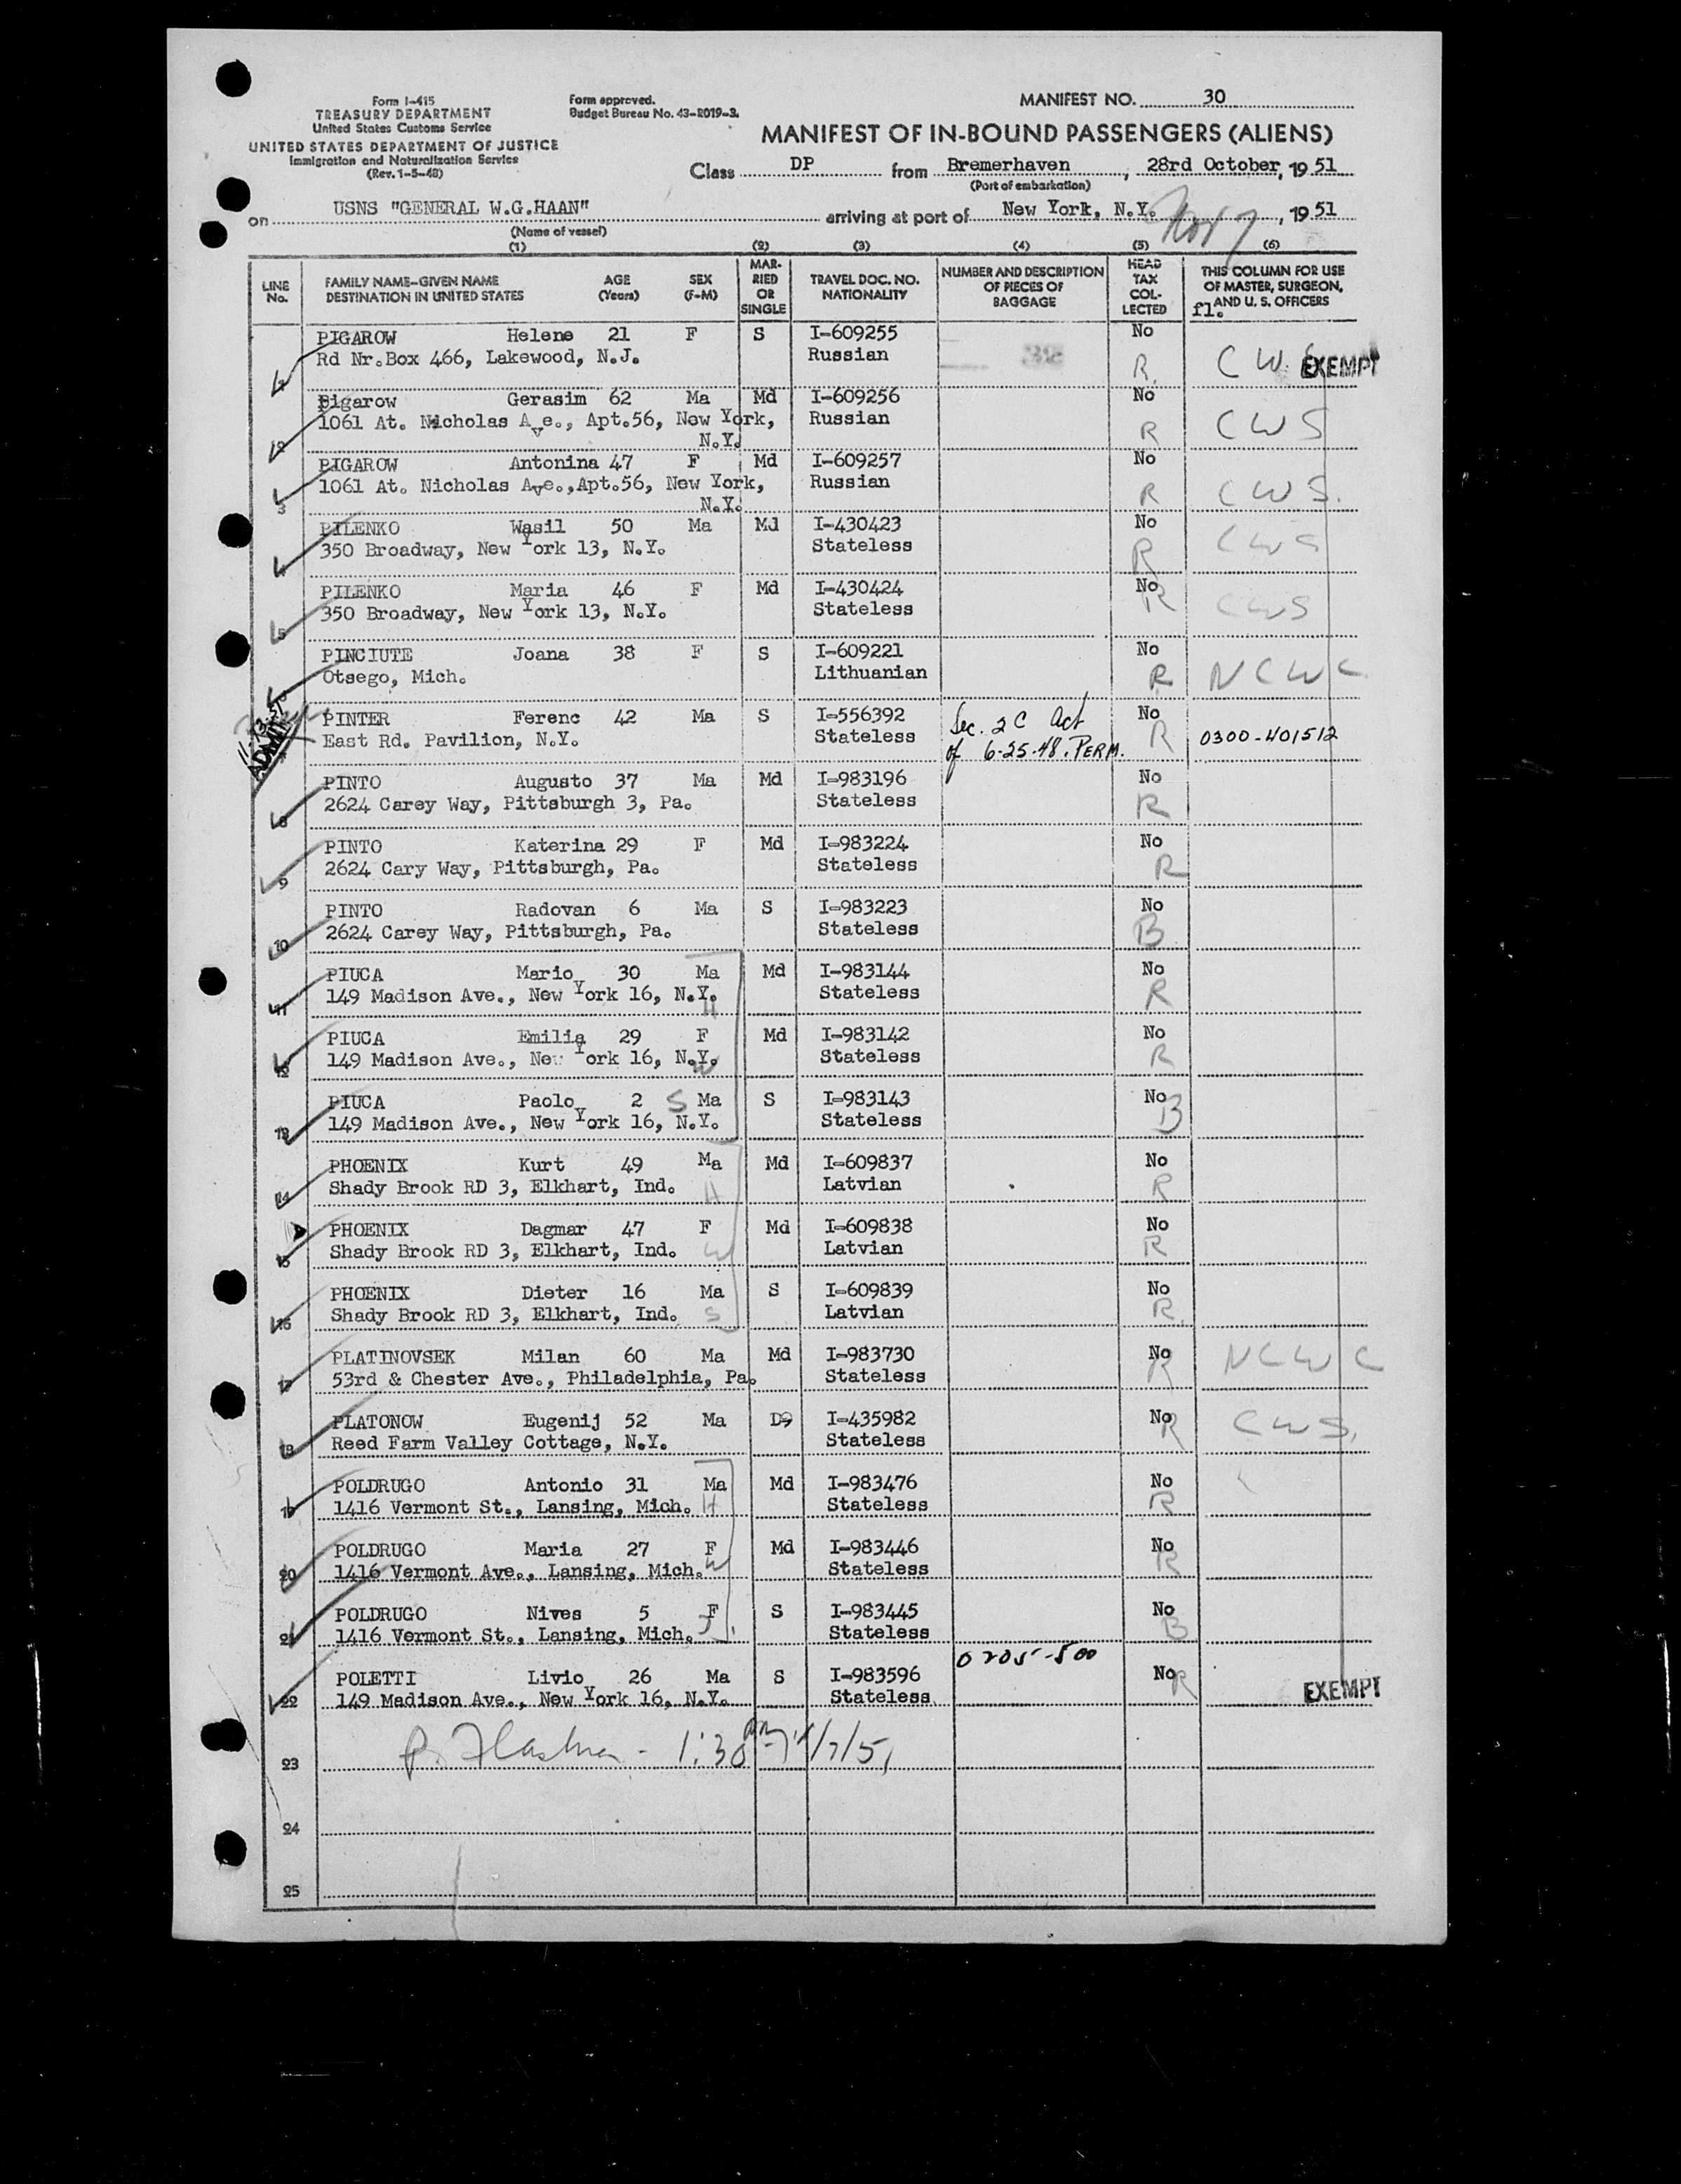 Form I-415
TREASURY DEPARTMENT
United States Customs Service
UNITED STATES DEPARTMENT OF JUSTICE
Immigration and Naturalization Service
(Rev. 1-5-48)
Form approved.
Budget Bureau No. 43-R019-3.
MANIFEST NO. 30
MANIFEST OF IN-BOUND PASSENGERS (ALIENS)
Class DP from Bremerhaven, 28rd October, 1951
(Port of embarkation)
on USNS "GENERAL W.G.HAAN" arriving at port of New York, N.Y. Nov 7, 1951
(Name of vessel)
(1) (2) (3) (4) (5) (6)
LINE No. FAMILY NAME-GIVEN NAME DESTINATION IN UNITED STATES AGE (Years) SEX (F-M) MARRIED OR SINGLE TRAVEL DOC. NO. NATIONALITY NUMBER AND DESCRIPTION OF PIECES OF BAGGAGE HEAD TAX COLLECTED THIS COLUMN FOR USE OF MASTER, SURGEON, AND U. S. OFFICERS
fl.
PIGAROW Helene 21 F S I-609255 No
Rd Nr.Box 466, Lakewood, N.J. Russian R. C W EXEMPT
2 Pigarow Gerasim 62 Ma Md I-609256 No
1061 At. Nicholas Ave., Apt.56, New York, Russian R C W S
N.Y.
PIGAROW Antonina 47 F Md I-609257 No
1061 At. Nicholas Ave.,Apt.56, New York, Russian R C W S.
3 N.Y.
PILENKO Wasil 50 Ma Md I-430423 No
4 350 Broadway, New York 13, N.Y. Stateless R C W S
PILENKO Maria 46 F Md I-430424 No
5 350 Broadway, New York 13, N.Y. Stateless R C W S
PINCIUTE Joana 38 F S I-609221 No
Otsego, Mich. Lithuanian R N C W C
PINTER Ferenc 42 Ma S I-556392 Sec. 2 C Act No
ADMIT East Rd. Pavilion, N.Y. Stateless of 6-25-48. PERM. R 0300-401512
PINTO Augusto 37 Ma Md I-983196 No
8 2624 Carey Way, Pittsburgh 3, Pa. Stateless R
PINTO Katerina 29 F Md I-983224 No
9 2624 Cary Way, Pittsburgh, Pa. Stateless R
PINTO Radovan 6 Ma S I-983223 No
10 2624 Carey Way, Pittsburgh, Pa. Stateless B
PIUCA Mario 30 Ma Md I-983144 No
11 149 Madison Ave., New York 16, N.Y. H Stateless R
PIUCA Emilia 29 F Md I-983142 No
12 149 Madison Ave., New York 16, N.Y. W Stateless R
PIUCA Paolo 2 S Ma S I-983143 No B
13 149 Madison Ave., New York 16, N.Y. Stateless
PHOENIX Kurt 49 Ma Md I-609837 No
14 Shady Brook RD 3, Elkhart, Ind. H Latvian R
PHOENIX Dagmar 47 F Md I-609838 No
15 Shady Brook RD 3, Elkhart, Ind. W Latvian R
PHOENIX Dieter 16 Ma S I-609839 No
16 Shady Brook RD 3, Elkhart, Ind. S Latvian R.
PLATINOVSEK Milan 60 Ma Md I-983730 No N C W C
17 53rd & Chester Ave., Philadelphia, Pa. Stateless R
PLATONOW Eugenij 52 Ma I-435982 No C W S.
18 Reed Farm Valley Cottage, N.Y. Stateless R
POLDRUGO Antonio 31 Ma Md I-983476 No
19 1416 Vermont St., Lansing, Mich. H Stateless R
POLDRUGO Maria 27 F Md I-983446 No
20 1416 Vermont Ave., Lansing, Mich. W Stateless R
POLDRUGO Nives 5 F S I-983445 No
21 1416 Vermont St., Lansing, Mich. Stateless B
0205-500
POLETTI Livio 26 Ma S I-983596 No R
22 149 Madison Ave., New York 16, N.Y. Stateless EXEMPT
23 1:30 11/7/51
24
25